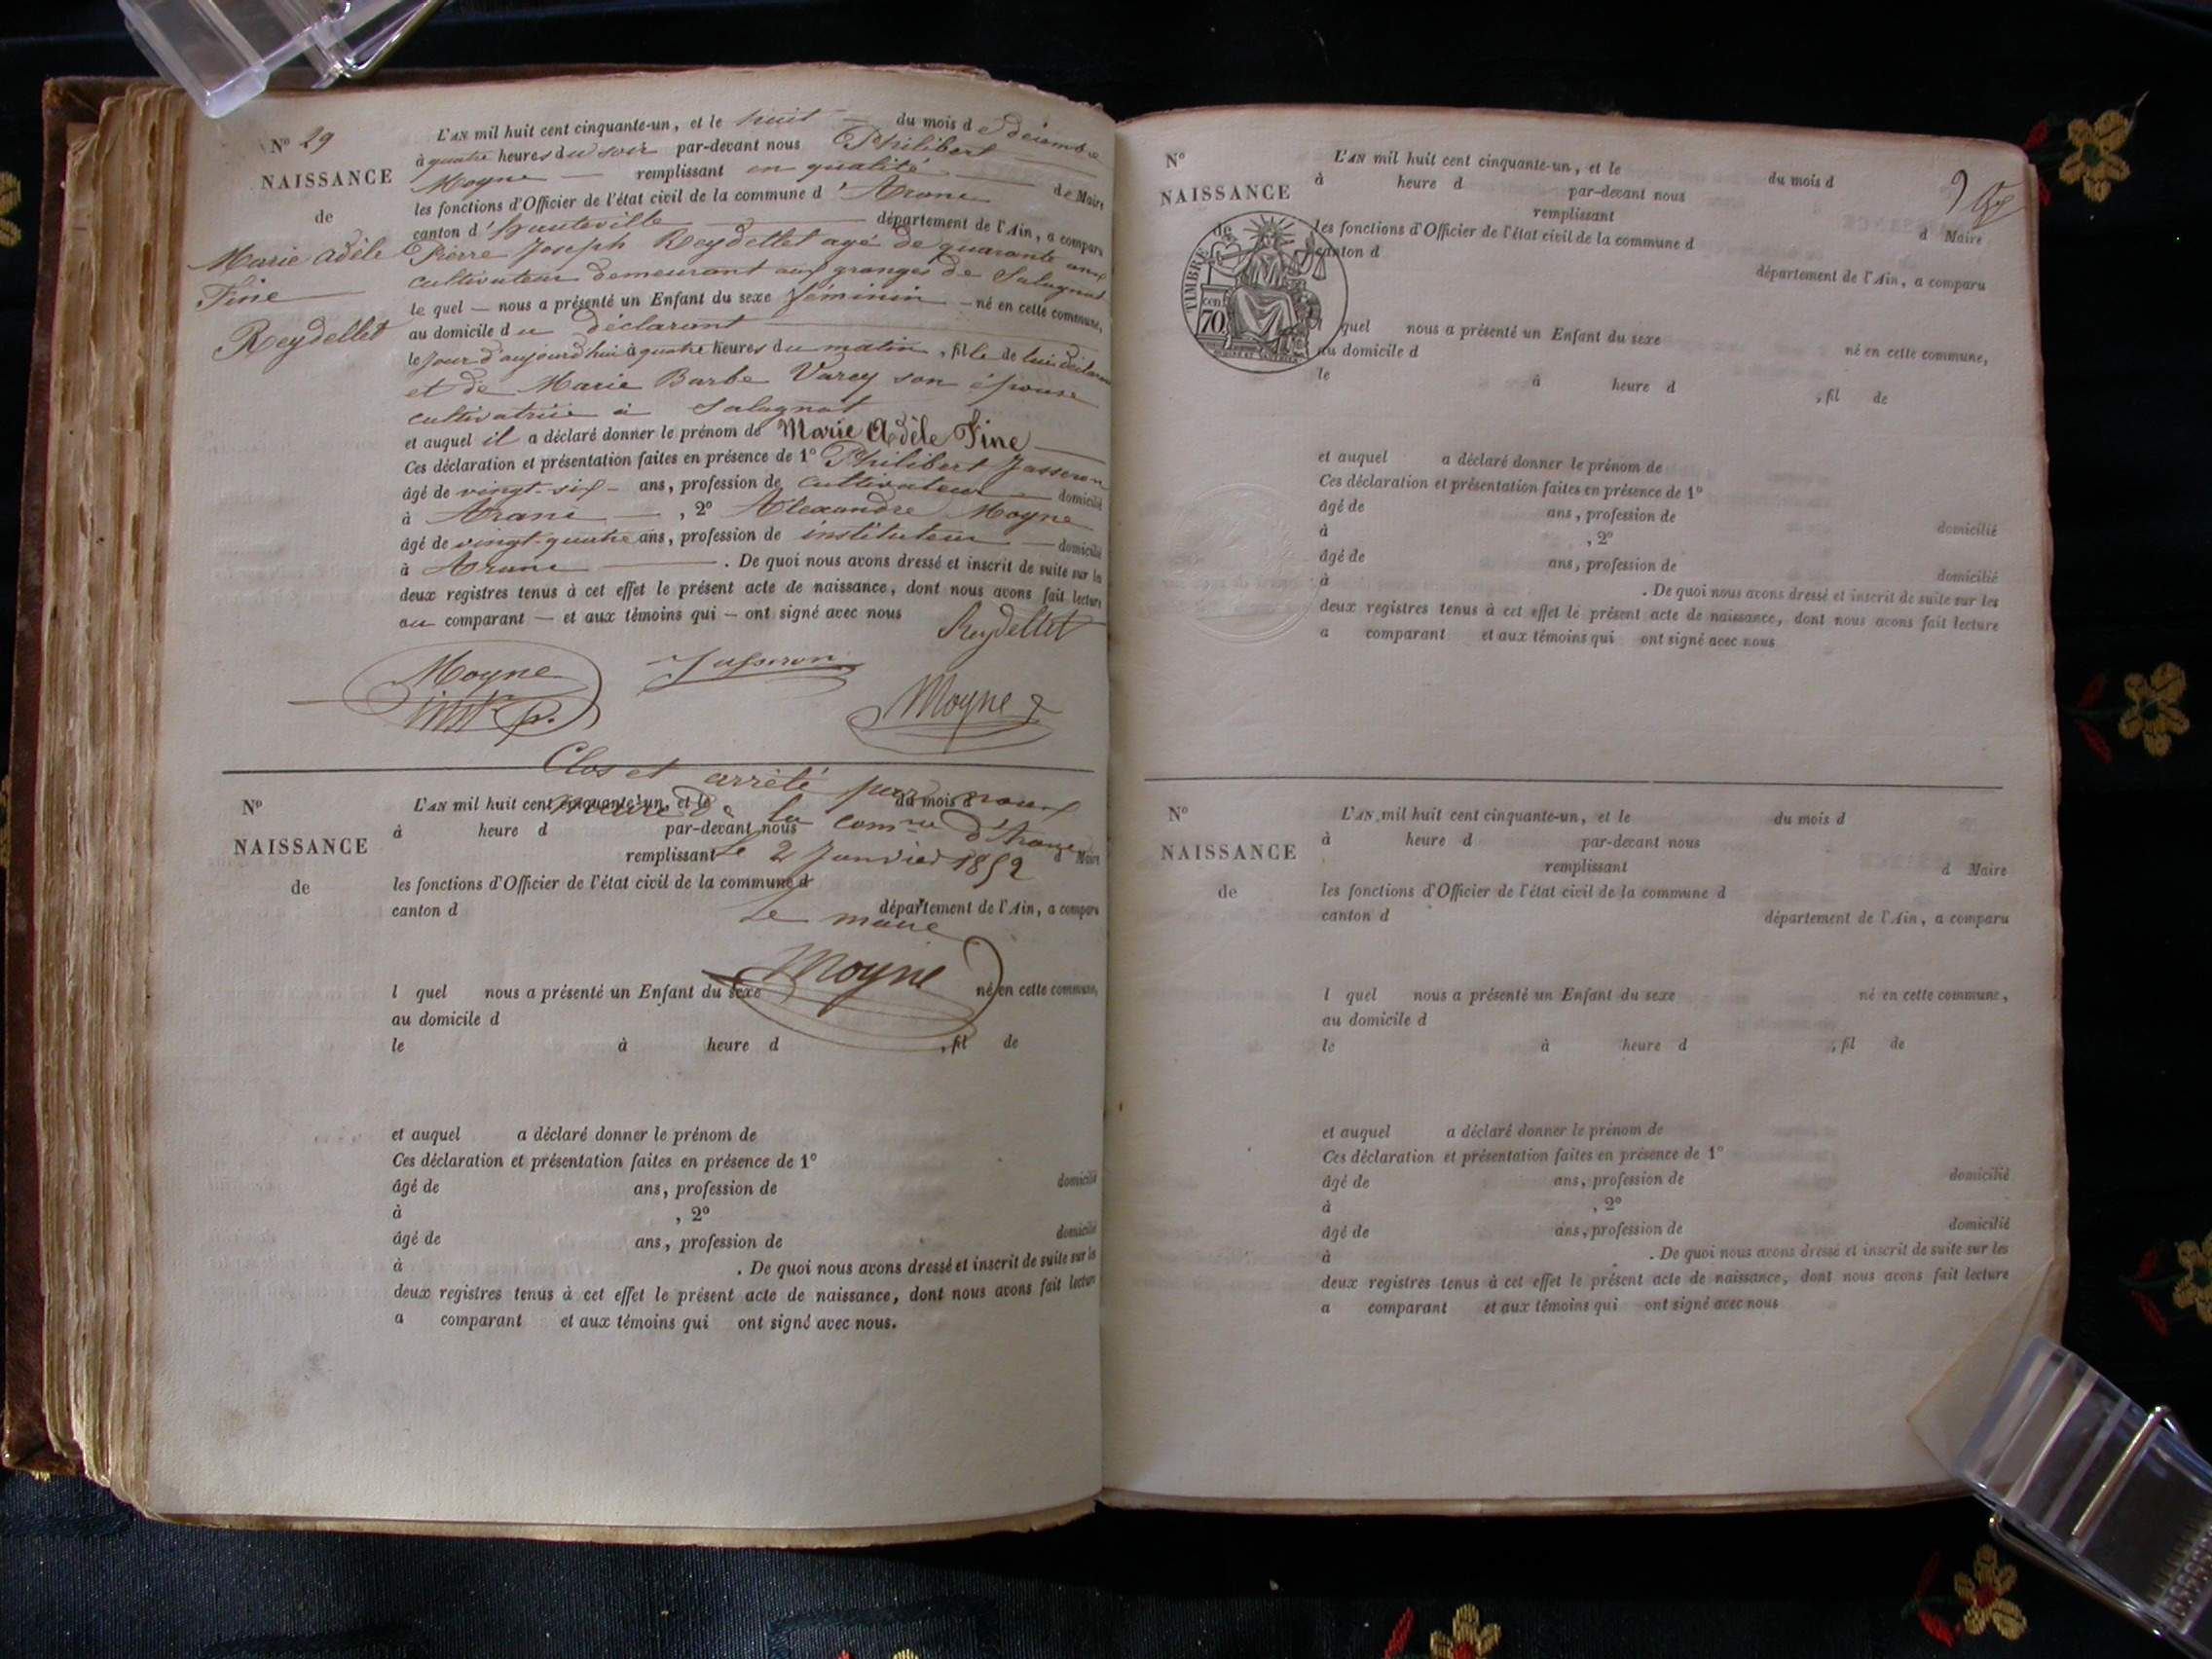 N° 29
NAISSANCE
de
Marie Adèle
Fine
Reydellet
L'AN mil huit cent cinquante-un, et le huit du mois de décembre
à quatre heures du soir par-devant nous Philibert
Moyne remplissant en qualité de Maire
les fonctions d'Officier de l'état civil de la commune d'Arane
canton d'hauteville département de l'Ain, a comparu
Pierre Joseph Reydellet agé de quarante ans
cultivateur demeurant aux granges de Salagnat
le quel nous a présenté un Enfant du sexe féminin né en cette commune,
au domicile du déclarant
le jour d'aujourd'hui à quatre heures du matin, fille de lui déclarant
et de Marie Barbe Varey son épouse
cultivatrice à Salagnat
et auquel il a déclaré donner le prénom de Marie Adèle Fine
Ces déclaration et présentation faites en présence de 1° Philibert Jasseron
âgé de vingt-six ans, profession de cultivateur domicilié
à Arane, 2° Alexandre Moyne
âgé de vingt-quatre ans, profession de instituteur domicilié
à Arane. De quoi nous avons dressé et inscrit de suite sur les
deux registres tenus à cet effet le présent acte de naissance, dont nous avons fait lecture
au comparant et aux témoins qui ont signé avec nous
Reydellet
Moyne Jasseron
instr Moyne
Clos et arrêté par nous
maire de la comne d'Arane
le 2 Janvier 1852
Le maire
Moyne
N°
NAISSANCE
de
L'AN mil huit cent cinquante-un, et le du mois d
à heure d par-devant nous
remplissant d Maire
les fonctions d'Officier de l'état civil de la commune d
canton d département de l'Ain, a comparu
l quel nous a présenté un Enfant du sexe né en cette commune,
au domicile d
le à heure d , fil de
et auquel a déclaré donner le prénom de
Ces déclaration et présentation faites en présence de 1°
âgé de ans, profession de domicilié
à , 2°
âgé de ans, profession de domicilié
à . De quoi nous avons dressé et inscrit de suite sur les
deux registres tenus à cet effet le présent acte de naissance, dont nous avons fait lecture
a comparant et aux témoins qui ont signé avec nous.
N°
NAISSANCE
TIMBRE de
70 cen
L'AN mil huit cent cinquante-un, et le du mois d
à heure d par-devant nous
remplissant d Maire
les fonctions d'Officier de l'état civil de la commune d
canton d département de l'Ain, a comparu
l quel nous a présenté un Enfant du sexe né en cette commune,
au domicile d
le à heure d , fil de
et auquel a déclaré donner le prénom de
Ces déclaration et présentation faites en présence de 1°
âgé de ans, profession de domicilié
à , 2°
âgé de ans, profession de domicilié
à . De quoi nous avons dressé et inscrit de suite sur les
deux registres tenus à cet effet le présent acte de naissance, dont nous avons fait lecture
a comparant et aux témoins qui ont signé avec nous
N°
NAISSANCE
de
L'AN mil huit cent cinquante-un, et le du mois d
à heure d par-devant nous
remplissant d Maire
les fonctions d'Officier de l'état civil de la commune d
canton d département de l'Ain, a comparu
l quel nous a présenté un Enfant du sexe né en cette commune,
au domicile d
le à heure d , fil de
et auquel a déclaré donner le prénom de
Ces déclaration et présentation faites en présence de 1°
âgé de ans, profession de domicilié
à , 2°
âgé de ans, profession de domicilié
à . De quoi nous avons dressé et inscrit de suite sur les
deux registres tenus à cet effet le présent acte de naissance, dont nous avons fait lecture
a comparant et aux témoins qui ont signé avec nous